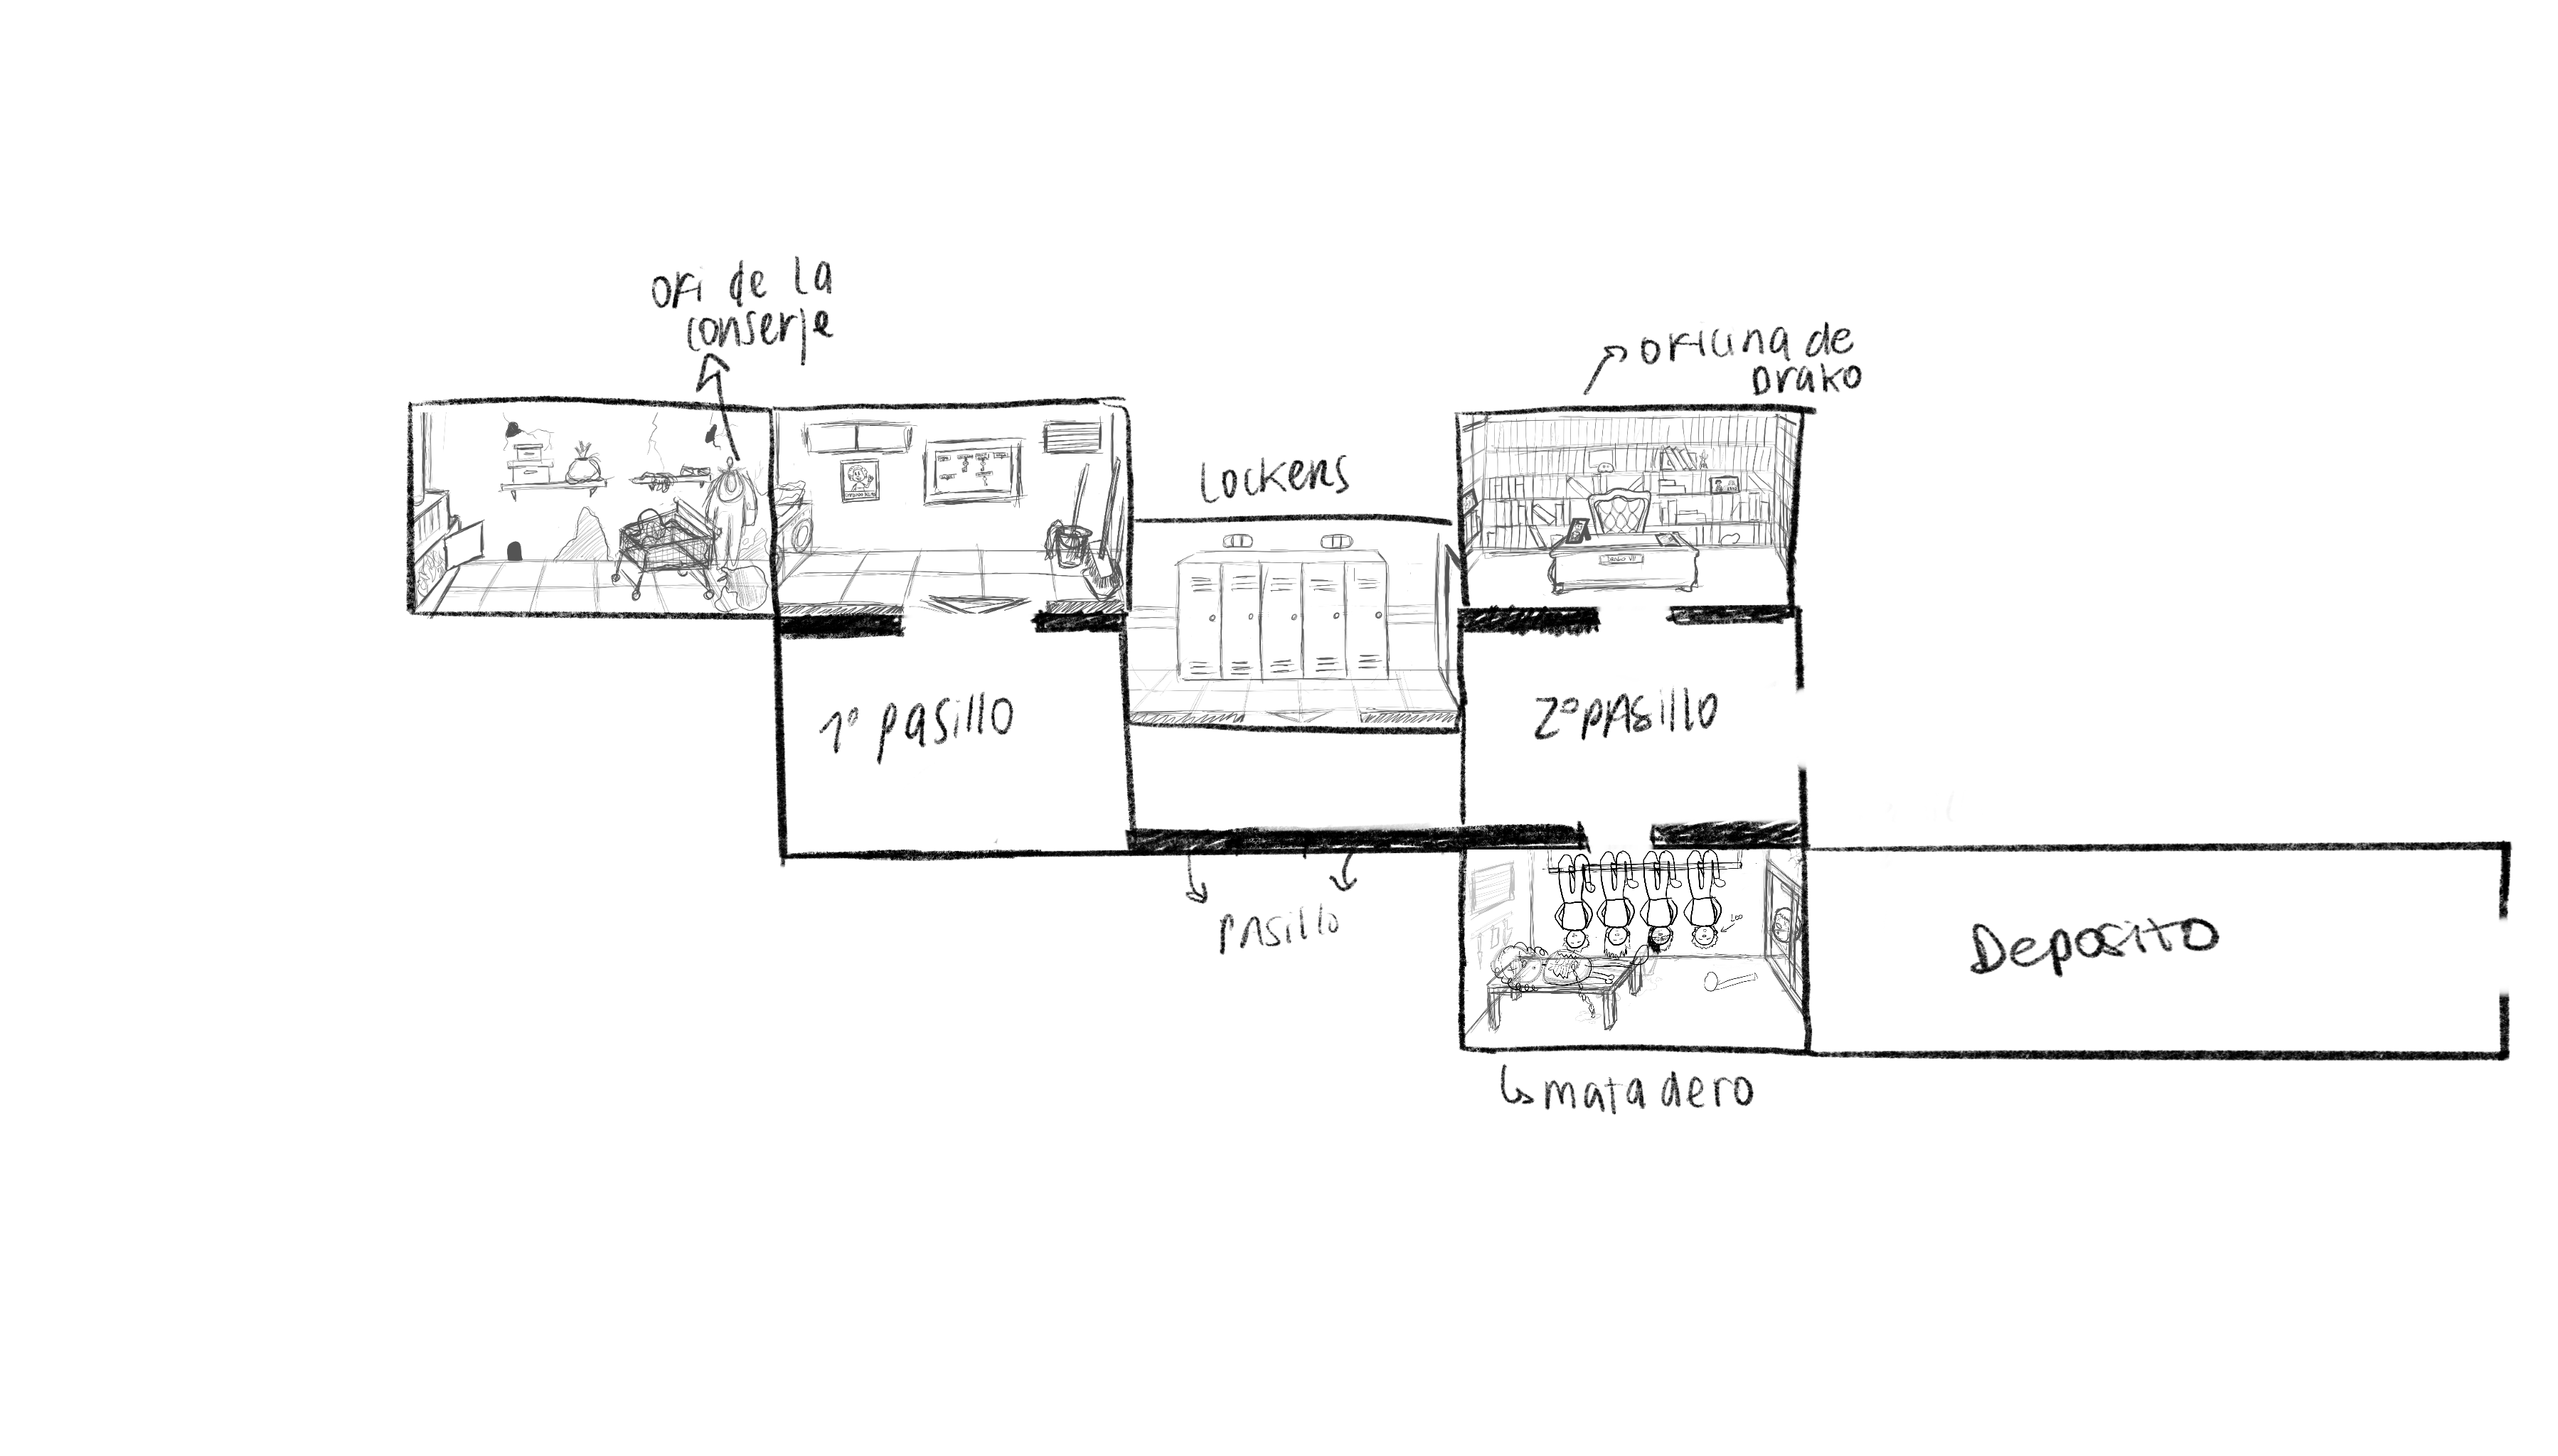 ofi de la
conserje
oficina de
Drako
Lockers
1º pasillo
2º pasillo
pasillo
Deposito
matadero